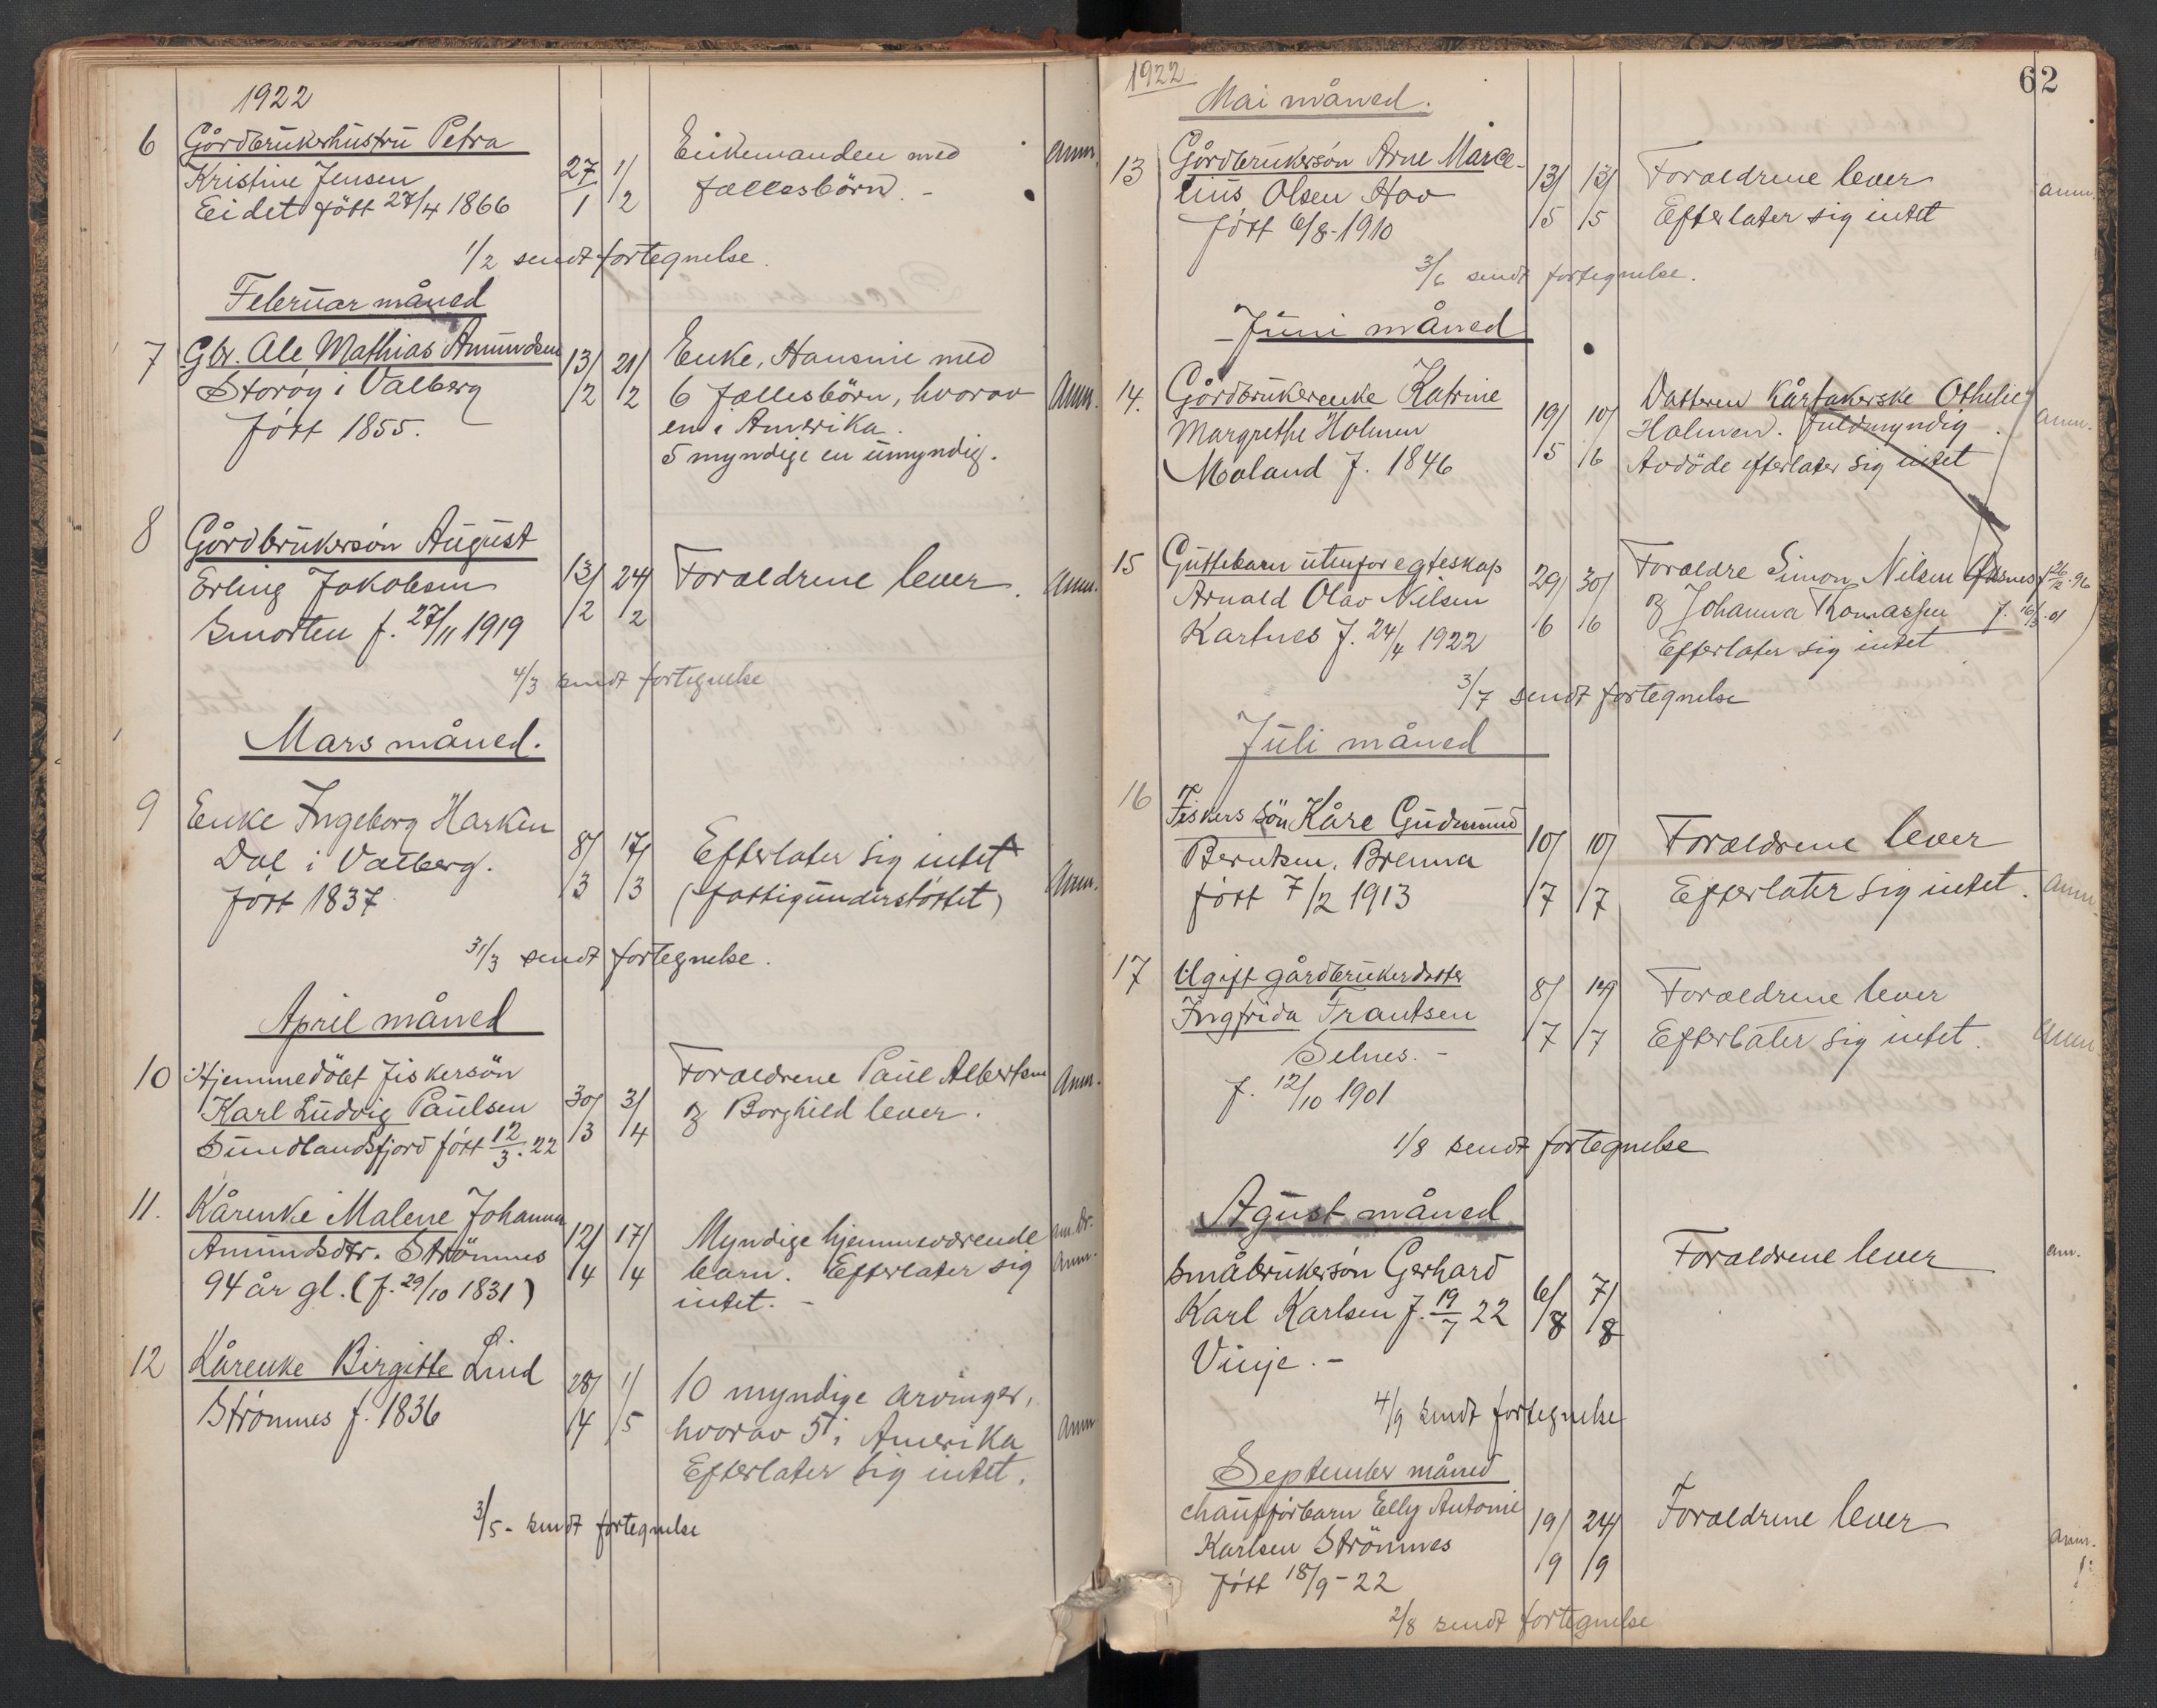 1922
6 Gårdbrukerhustru Petra
Kristine Jensen
Eidet født 27/4 1866
27/1 1/2
Enkemanden med
fællesbörn. -
anm.
1/2 sendt fortegnelse.
Februar måned
7 Gbr. Ale Mathias Amundsen
Storøy i Valberg
født 1855.
13/2 21/2
Enke, Hansine med
6 fællesbörn, hvorav
en i Amerika.
5 myndige en umyndig.
Anm.
8 Gårdbrukersøn August
Erling Jakobsen
Smorten f. 27/11 1919
13/2 24/2
Foraeldrene lever.
Anm.
4/3 sendt fortegnelse
Mars måned.
9 Enke Ingeborg Harken
Dal i Valberg.
født 1837
8/3 17/3
Efterlater sig intet
(fattigunderstøttet)
Anm.
31/3 sendt fortegnelse.
April måned
10 Hjemmedöbt fiskersön
Karl Ludvig Paulsen
Sundlandsfjord født 12/3. 22
30/3 3/4
Foraeldrene Paul Albertsen
og Borghild lever.
Anm.
11. Kårenke Malene Johanna
Amundsdtr. Strömnes
94 år gl. (f. 29/10 1831)
12/4 17/4
Myndige hjemmeværende
barn. Efterlater sig
intet. -
Anm.
12 Kårenke Birgitte Lind
Strömnes f. 1836
28/4 1/5
10 myndige arvinger,
hvorav 5 i Amerika
Efterlater sig intet.
Anm
3/5 - sendt fortegnelse
1922
62
Mai måned.
13 Gårdbrukersøn Arne Marce-
lius Olsen Hov
født 6/8 - 1910
13/5 13/5
Foraeldrene lever
Efterlater sig intet
anm.
3/6 sendt fortegnelse.
Juni måned
14. Gårdbrukerenke Katrine
Margrethe Holmen
Moland f. 1846
19/5 10/6
Datteren Kårtakerske Othelie
Holmen. Fuldmyndig.
Avdöde efterlater sig intet
anm.
15 Guttebarn utenfor egteskap
Arnold Olav Nilsen
Kartnes f. 24/4 1922
29/6 30/6
Foraeldre Simon Nilsen f 26/2. 96
og Johanna Thomassen f. 16/3. 01
Efterlater sig intet
3/7 sendt fortegnelse
Juli måned
16 Fiskers sön Kåre Gudmund
Berntsen, Brenna
født 7/2 1913
10/7 10/7
Foraeldrene lever
Efterlater sig intet.
Anm.
17 Ugift gårdbrukerdatter
Ingfrida Frantsen
Selnes. -
f. 12/10 1901
8/7 14/7
Foraeldrene lever
Efterlater sig intet.
Anm
1/8 sendt fortegnelse
Agust måned
Småbrukersøn Gerhard
Karl Karlsen f. 19/7 22
Vinje. -
6/8 7/8
Foraeldrene lever
anm.
4/9 sendt fortegnelse
September måned
chaufförbarn Elly Antonie
Karlsen Strömnes
født 18/9 - 22
19/9 24/9
Foraeldrene lever
anm.
2/8 sendt fortegnelse